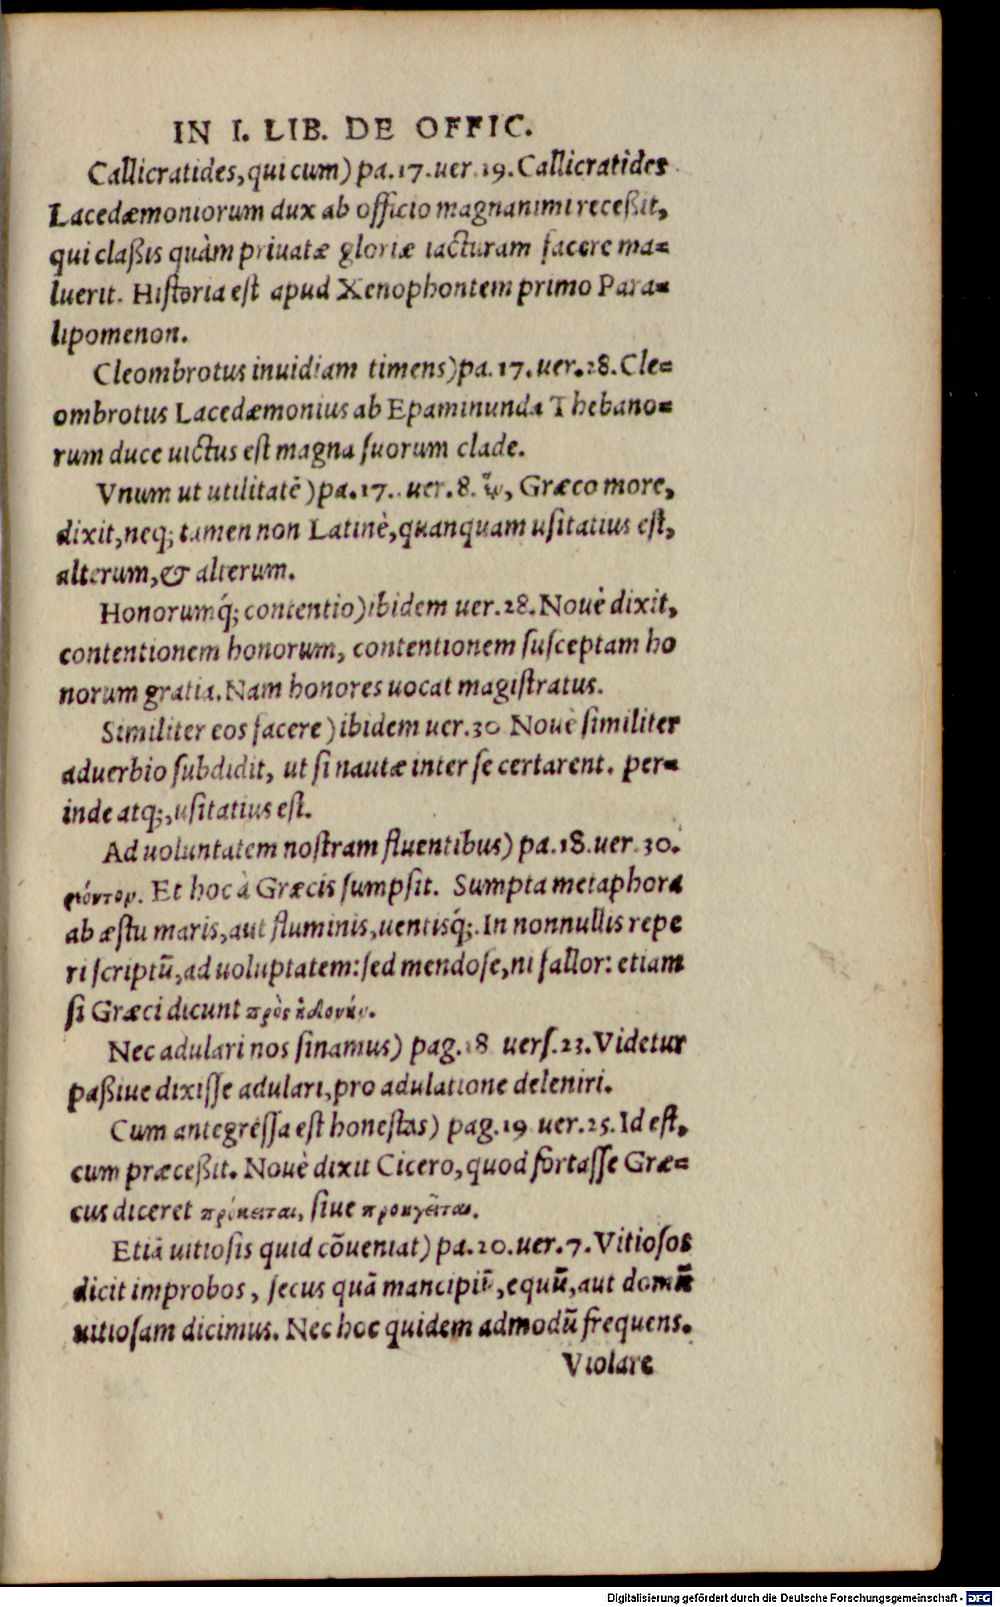 IN I. LIB. DE OFFIC.
Callicratides, qui cum) pa.17.uer.19. Callicratides
Lacedæmoniorum dux ab officio magnanimi receßit,
qui claßis quàm priuatæ gloriæ iacturam facere ma=
luerit. Historia est apud Xenophontem primo Para=
lipomenon.
Cleombrotus inuidiam timens) pa.17.uer.28. Cle=
ombrotus Lacedæmonius ab Epaminunda Thebano=
rum duce uictus est magna suorum clade.
Vnum ut utilitatē) pa.17. uer.8. Græco more,
dixit, neq; tamen non Latinè, quanquam usitatius est,
alterum, & alterum.
Honorumq́; contentio) ibidem uer.28. Nouè dixit,
contentionem honorum, contentionem susceptam ho
norum gratia. Nam honores uocat magistratus.
Similiter eos facere) ibidem uer.30 Nouè similiter
aduerbio subdidit, ut si nautæ inter se certarent. per=
inde atq;, usitatius est.
Ad uoluntatem nostram fluentibus) pa.18.uer.30.
Et hoc à Græcis sumpsit. Sumpta metaphora
ab æstu maris, aut fluminis, uentisq́;. In nonnullis repe
ri scriptū, ad uoluptatem: sed mendose, ni fallor: etiam
si Græci dicunt πρὸς ἡδονήν.
Nec adulari nos sinamus) pag.18 uers.23. Videtur
paßiue dixisse adulari, pro adulatione deleniri.
Cum antegressa est honestas) pag.19 uer.25. Id est,
cum præceßit. Nouè dixit Cicero, quod fortasse Græ=
cus diceret πρόκειται, siue προηγεῖται.
Etiā uitiosis quid cōueniat) pa.20.uer.7. Vitiosos
dicit improbos, secus quā mancipiū, equū, aut domū
uitiosam dicimus. Nec hoc quidem admodū frequens.
Violare
Digitalisierung gefördert durch die Deutsche Forschungsgemeinschaft - DFG